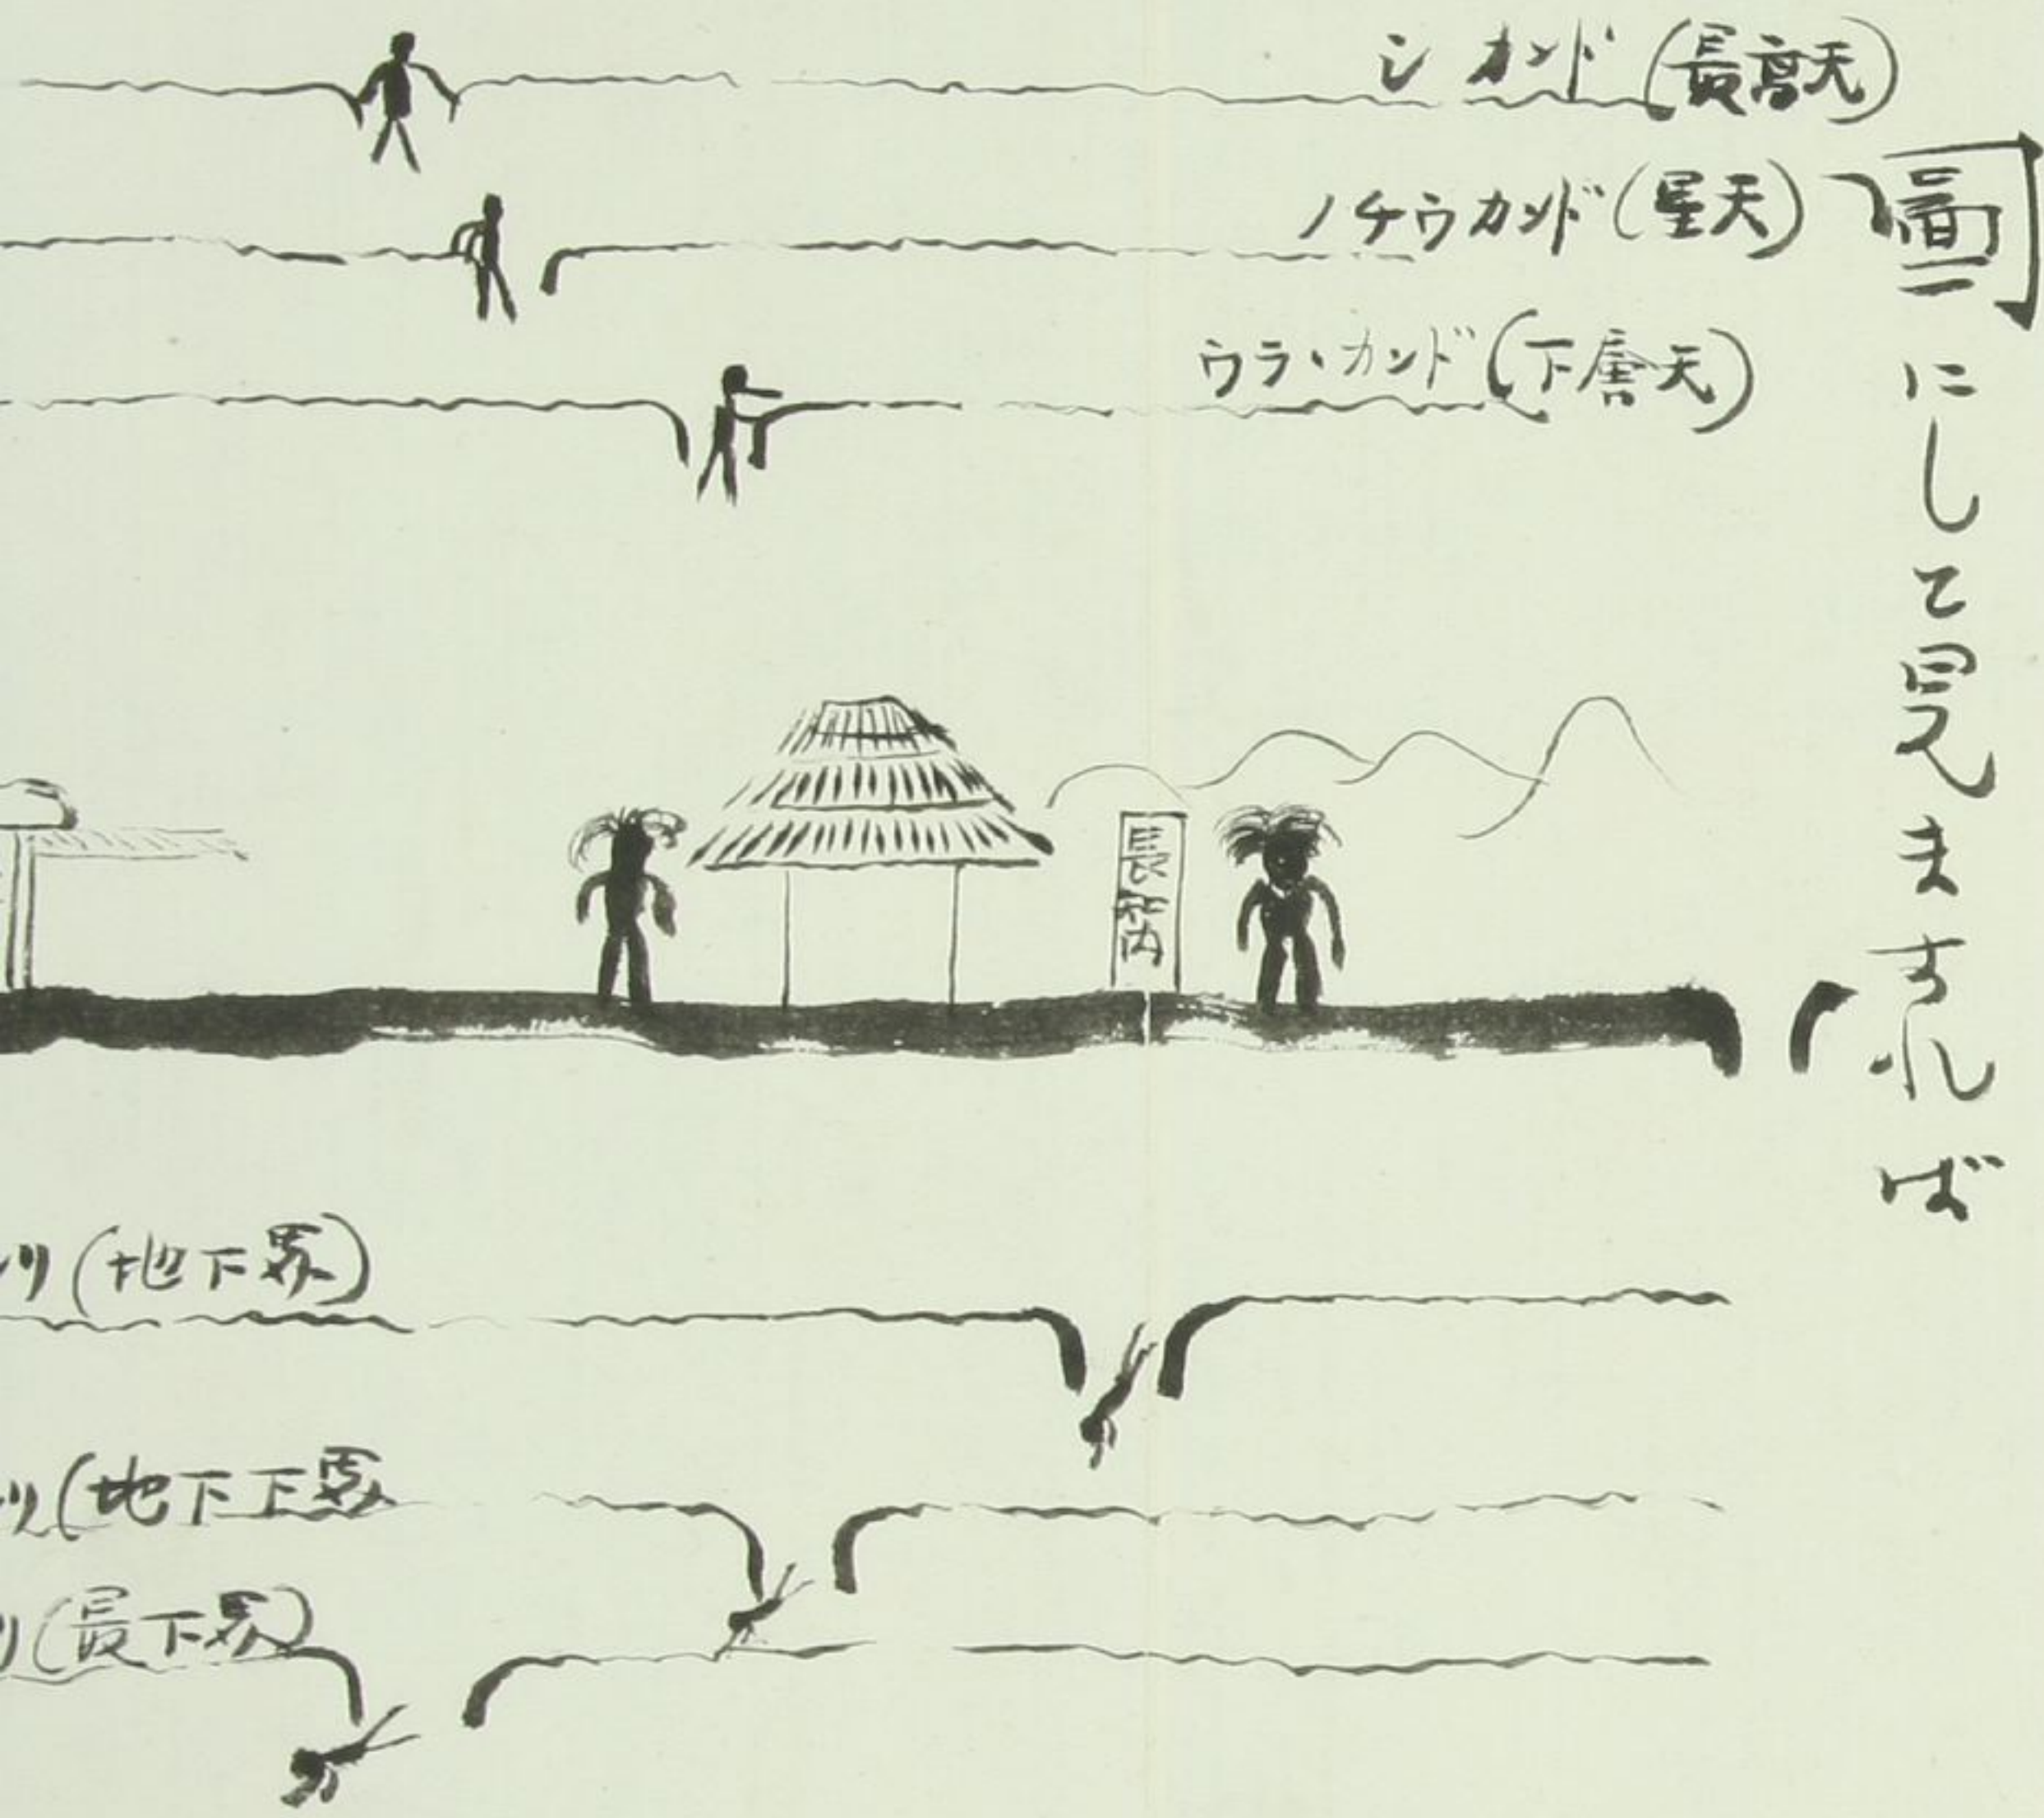 圖にして見ますれば
シカンド(最高天)
ノチウカンド(星天)
ウラ・カンド(下層天)
長知内
リ(地下界)
リ(地下下界
リ(最下界)